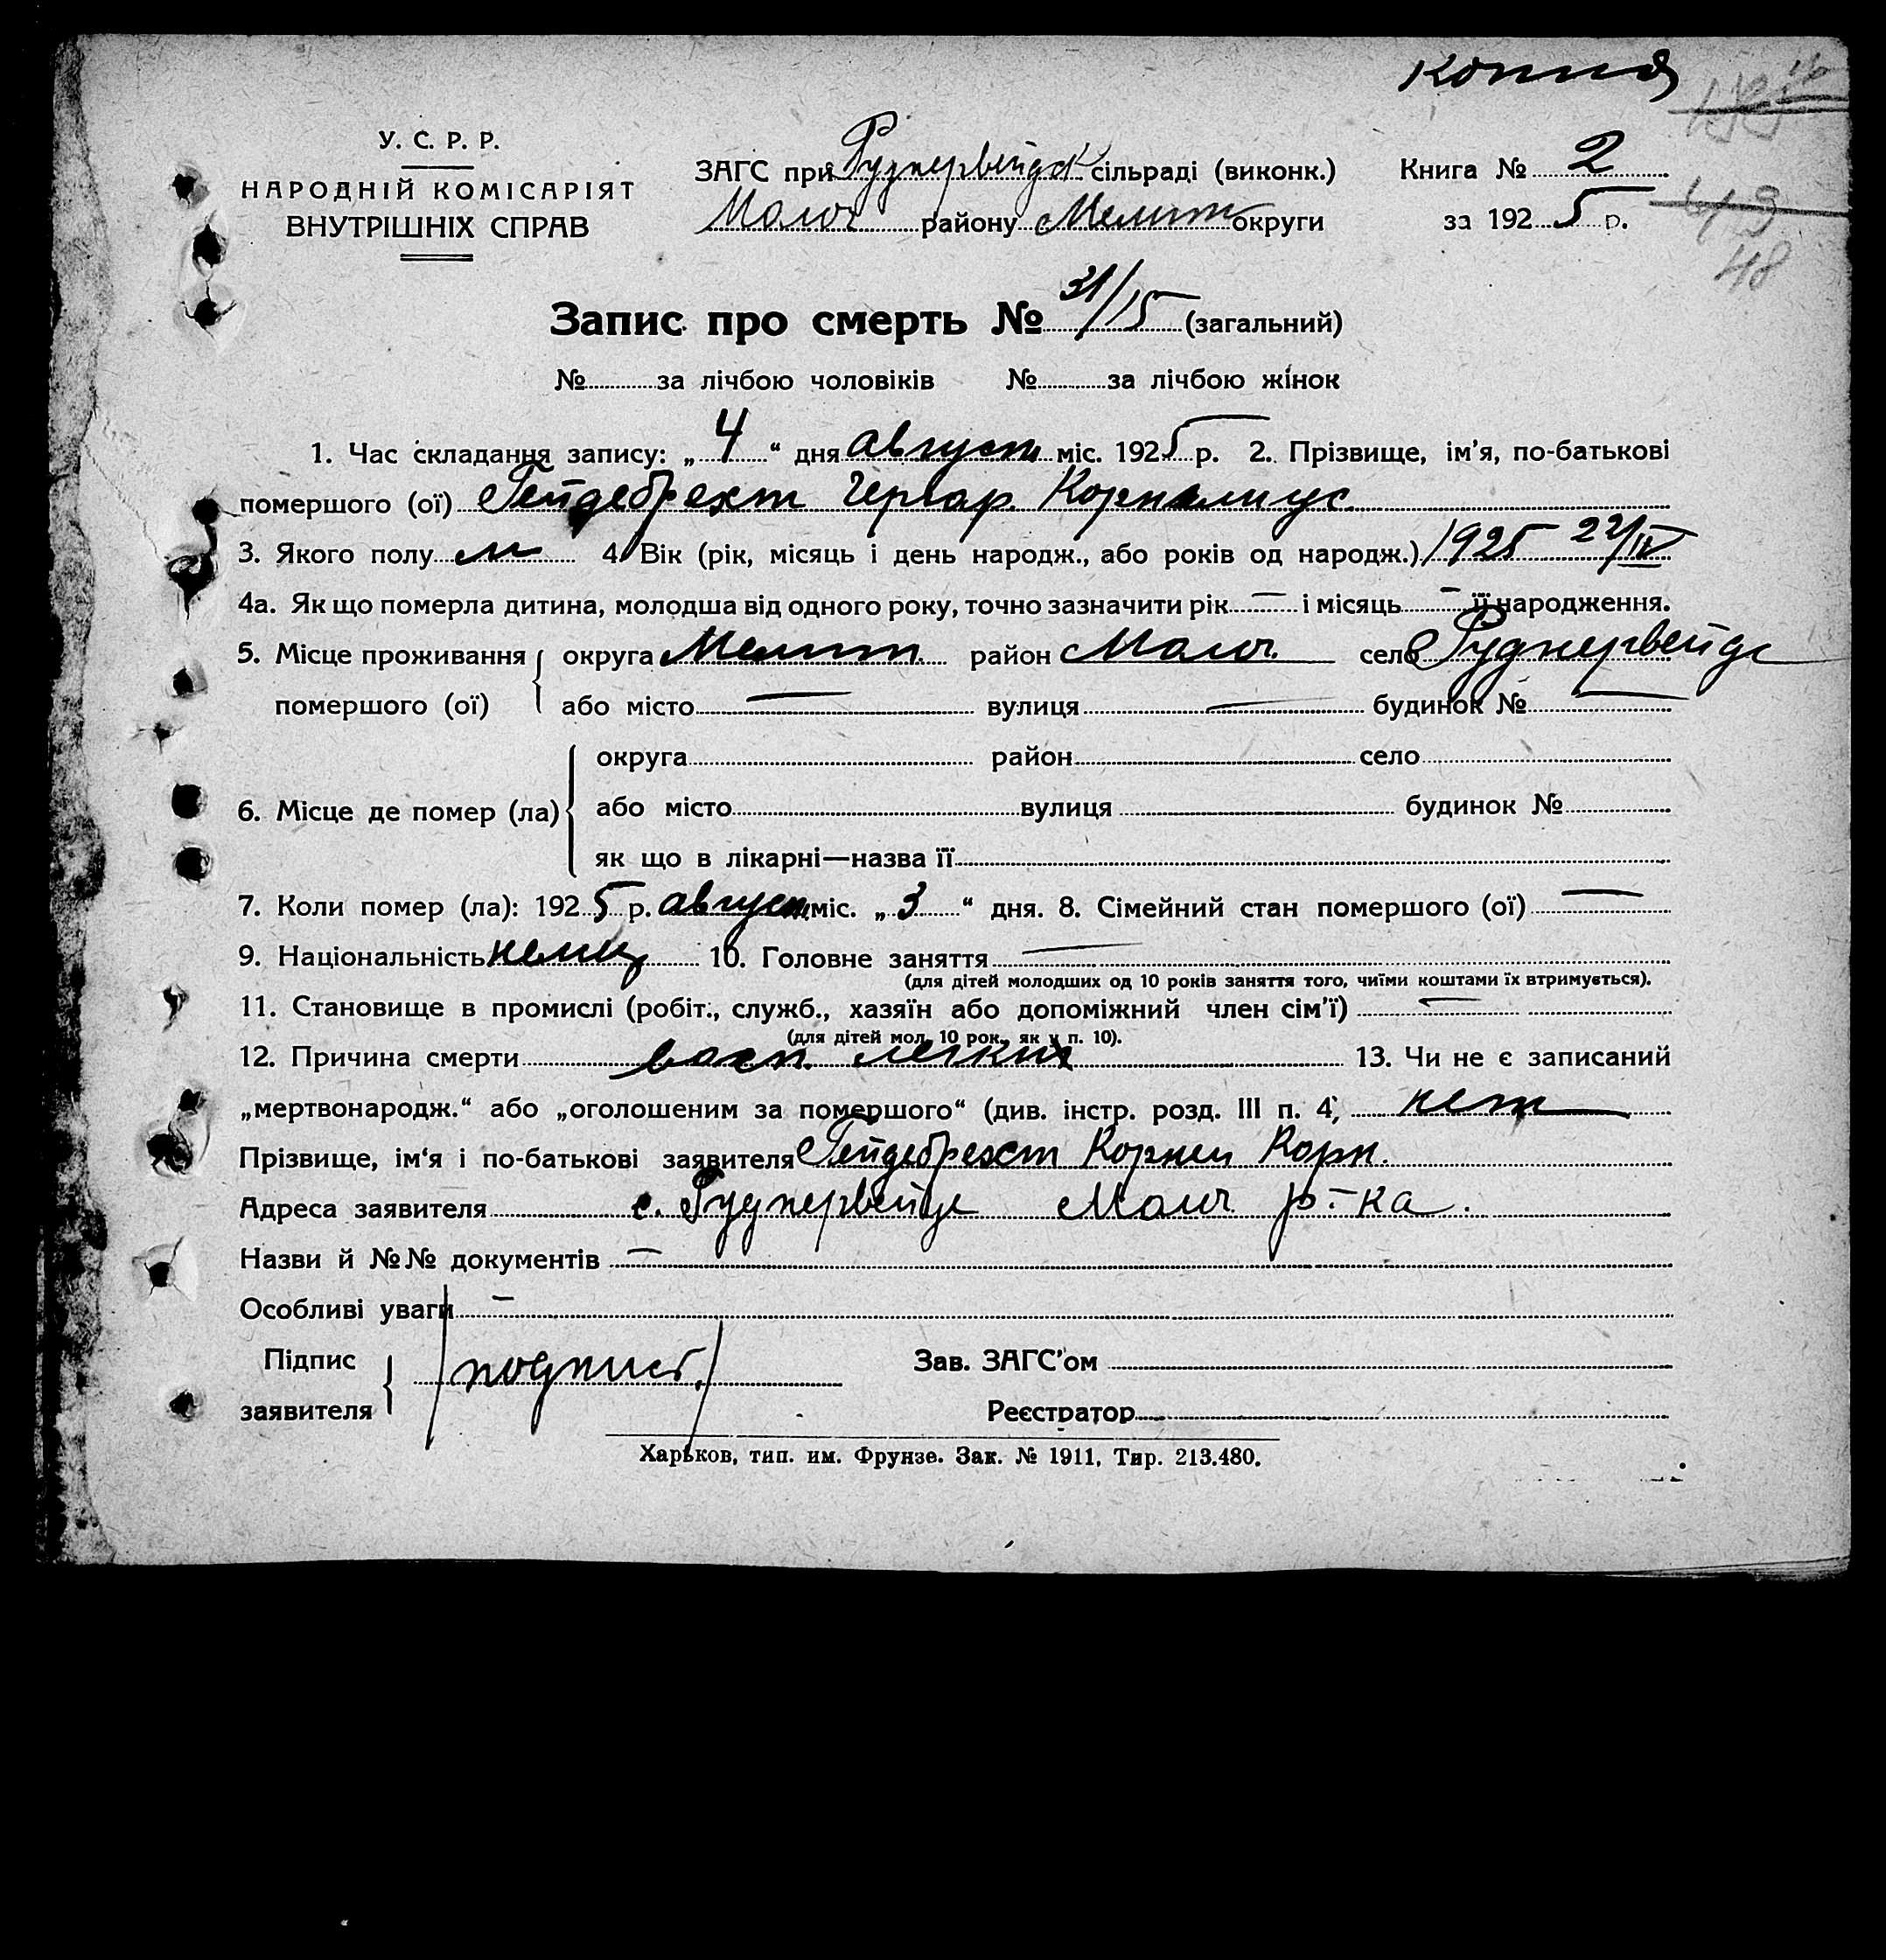 копия
У. С. Р. Р.
НАРОДНІЙ КОМІСАРІЯТ
ВНУТРІШНІХ СПРАВ
ЗАГС при Руднервейдск сільраді (виконк.)
Молоч району Мелит округи
Книга № 2
за 1925 р.
48
Запис про смерть № 31/15 (загальний)
№ за лічбою чоловіків № за лічбою жінок
1. Час складання запису: „4“ дня август міс. 1925 р. 2. Прізвище, ім’я, по-батькові
помершого (ої) Гейдебрехт Гергар. Корнелиус.
3. Якого полу м 4. Вік (рік, місяць і день народж., або років од народж.) 1925 22/IV
4а. Як що померла дитина, молодша від одного року, точно зазначити рік — і місяць — її народження.
5. Місце проживання округа Мелит. район Молоч. село Руднервейде
помершого (ої) або місто — вулиця — будинок № —
округа район село
6. Місце де помер (ла) або місто вулиця будинок №
як що в лікарні—назва її
7. Коли помер (ла): 1925 р. август міс. „3“ дня. 8. Сімейний стан помершого (ої) —
9. Національність немец 10. Головне заняття —
(для дітей молодших од 10 років заняття того, чиїми коштами їх втримується).
11. Становище в промислі (робіт., служб., хазяїн або допоміжний член сім’ї) —
(для дітей мол. 10 рок. як у п. 10).
12. Причина смерти восп. легких 13. Чи не є записаний
„мертвонародж.“ або „оголошеним за помершого“ (див. інстр. розд. III п. 4; нет
Прізвище, ім‘я і по-батькові заявителя Гейдебрехт Корней Корн.
Адреса заявителя с. Руднервейде Молоч р-ка.
Назви й №№ документів —
Особливі уваги —
Підпис
заявителя /подпись/
Зав. ЗАГС’ом
Реєстратор
Харьков, тип. им. Фрунзе. Зак. № 1911, Тир. 213.480.